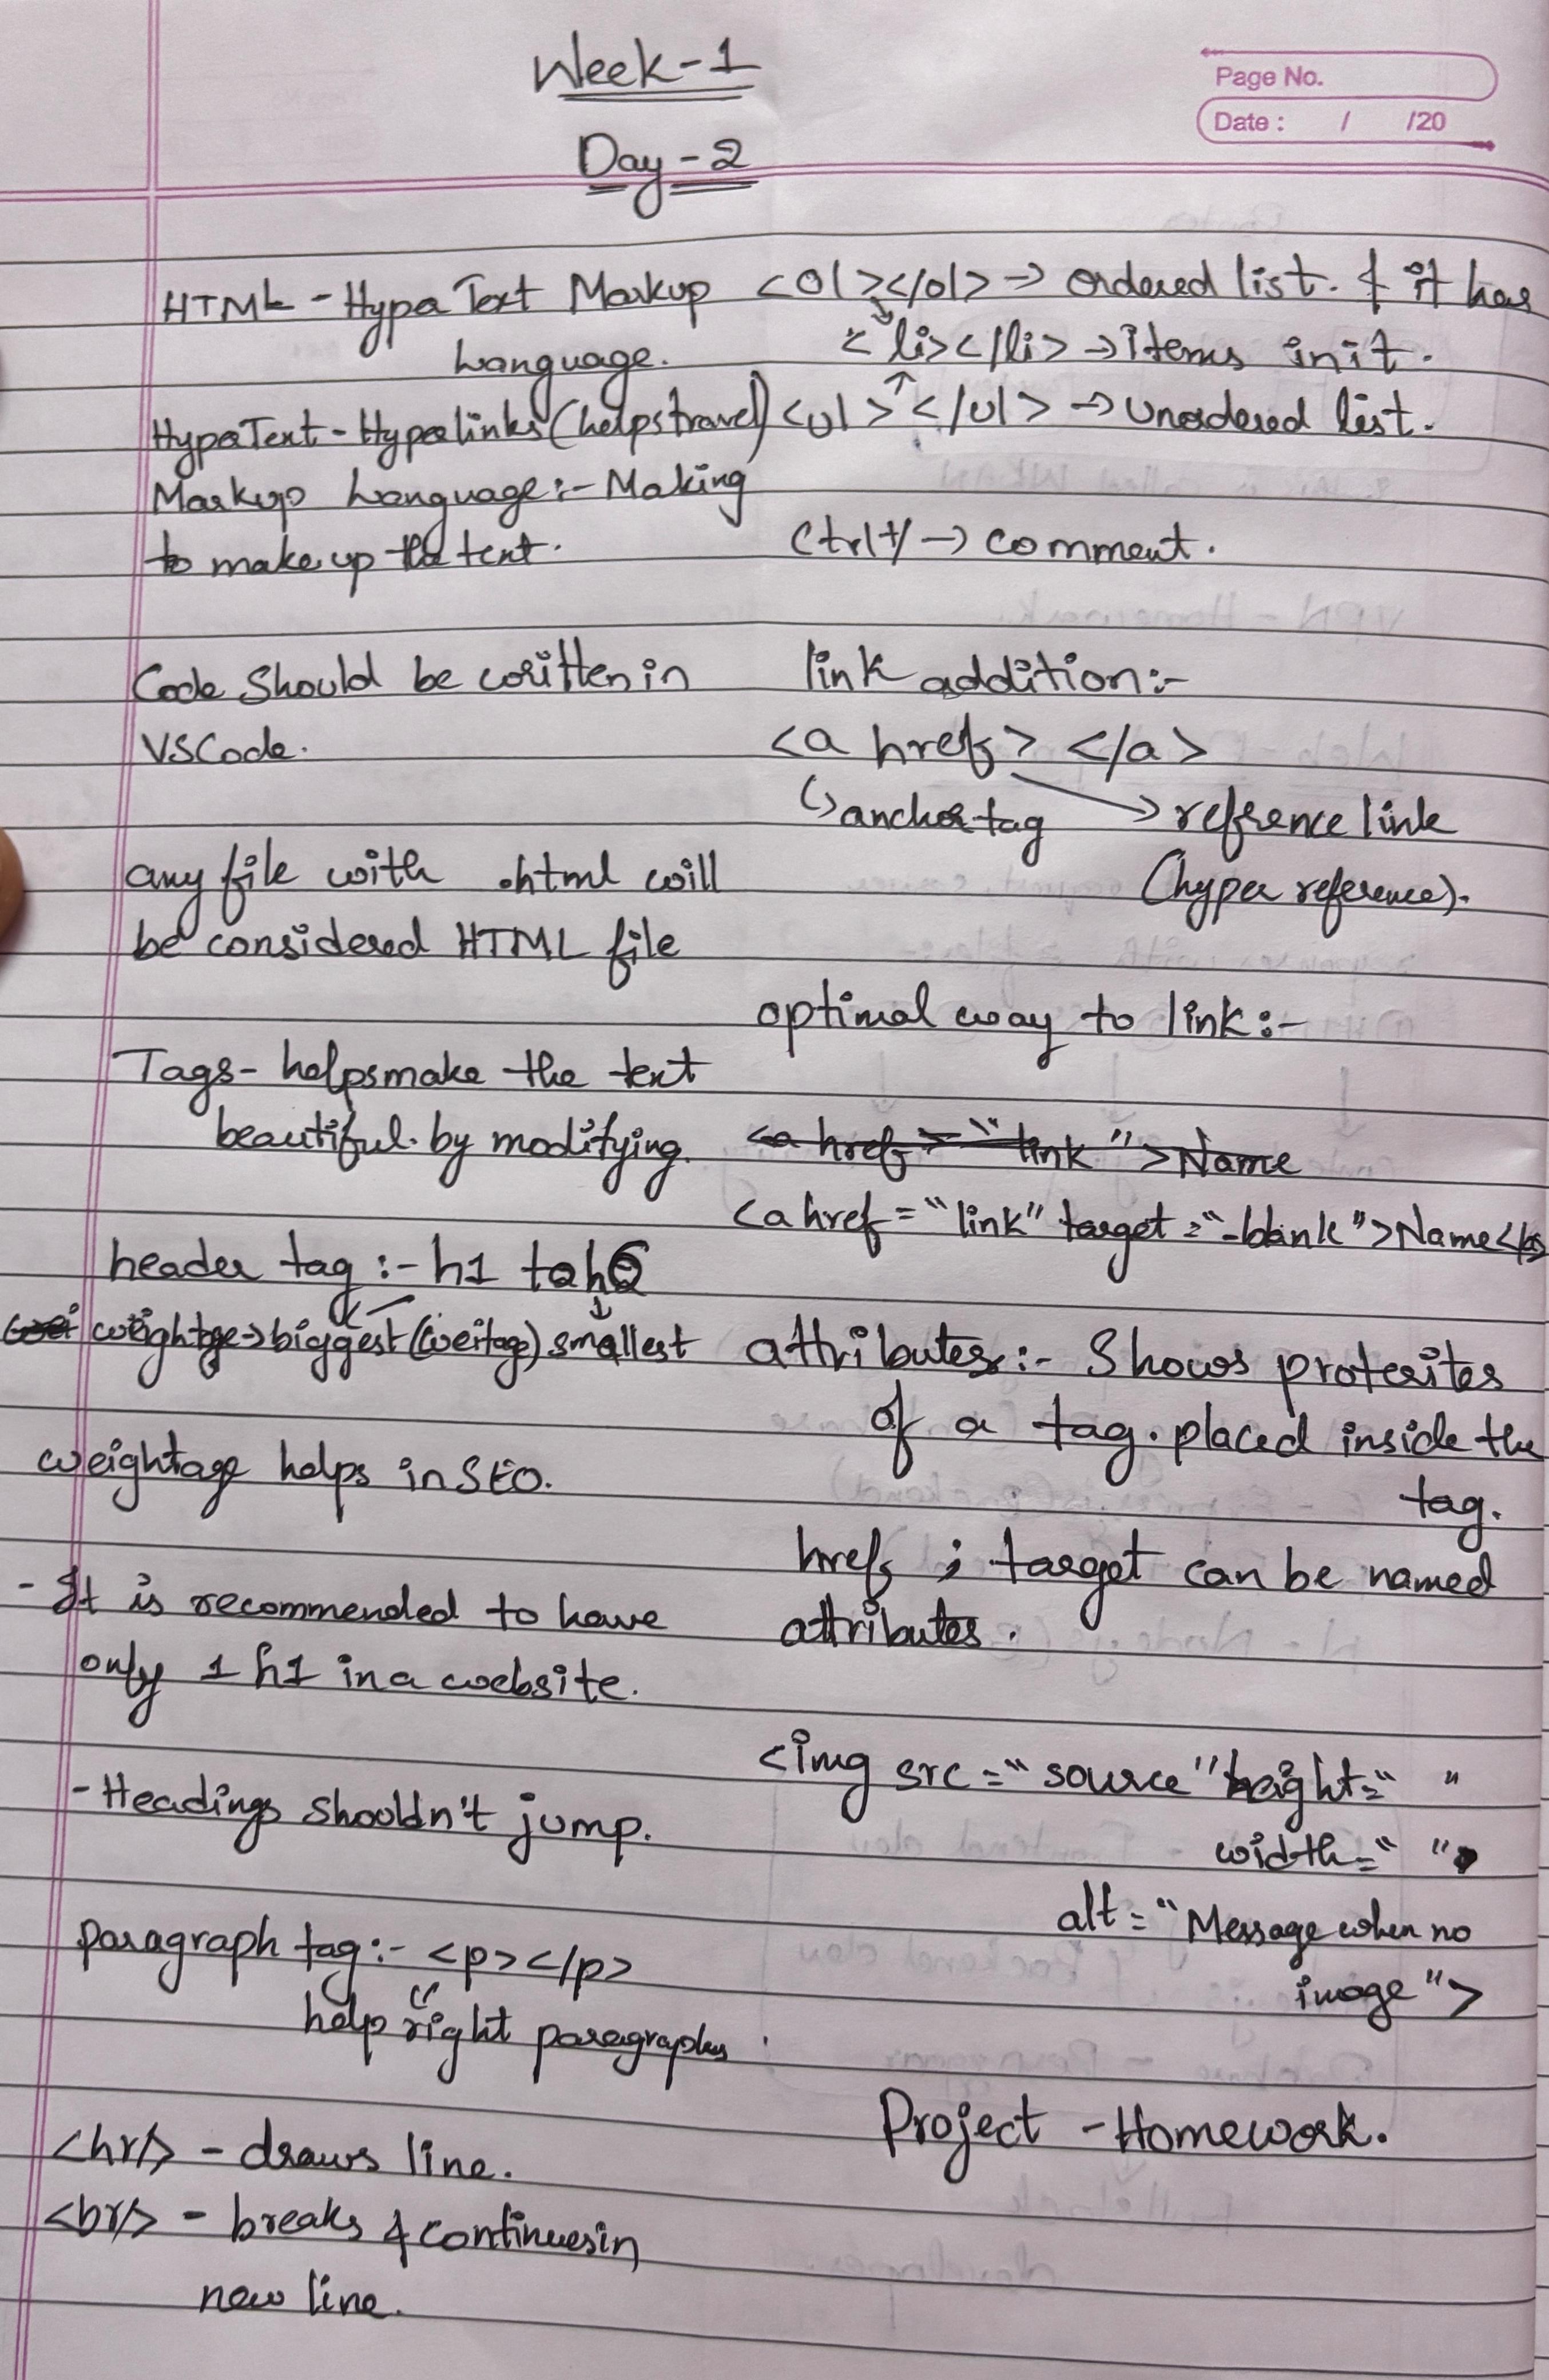 Week-1
Page No.
Date : / /20
Day-2
HTML - Hyper Text Markup
Language.
HyperText - Hyperlinks (helps travel)
Markup Language:- Making
to make up the text.
Code should be written in
VSCode.
any file with .html will
be considered HTML file
Tags- helps make the text
beautiful. by modifying.
header tag :- h1 to h6
weightge→biggest (weitage) smallest
weightage helps in SEO.
- It is recommended to have
only 1 h1 in a website.
- Headings shouldn't jump.
paragraph tag:- <p></p>
help right paragraphs
<hr/> - draws line.
<br/> - breaks & continues in
new line.
<ol></ol> → ordered list. & it has
<li></li> → items in it.
<ul></ul> → unordered list.
Ctrl+/ → comment.
link addition:-
<a href> </a>
↳ anchor tag → refrence link
(hyper reference).
optimal way to link:-
<a href> = "link"> Name
<a href = "link" target = "_blank">Name</a>
attributes:- Shows proterites
of a tag. placed inside the
tag.
href ; target can be named
attributes.
<img src = "source" height = " "
width = " "
alt = "Message when no
image">
Project - Homework.